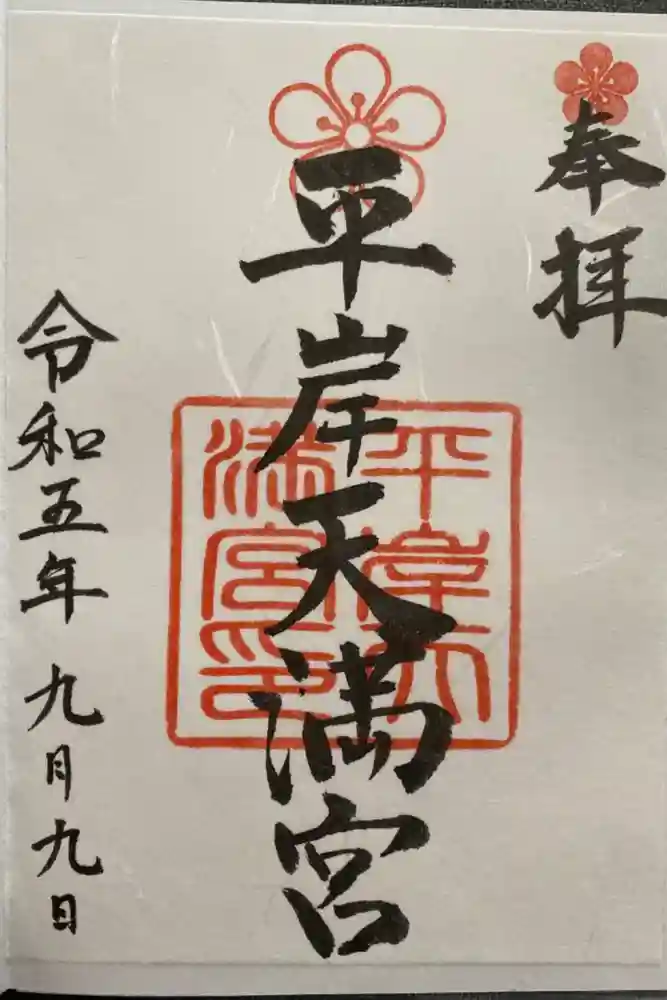 奉拝
平岸天満宮
平岸天
満宮印
令和五年九月九日